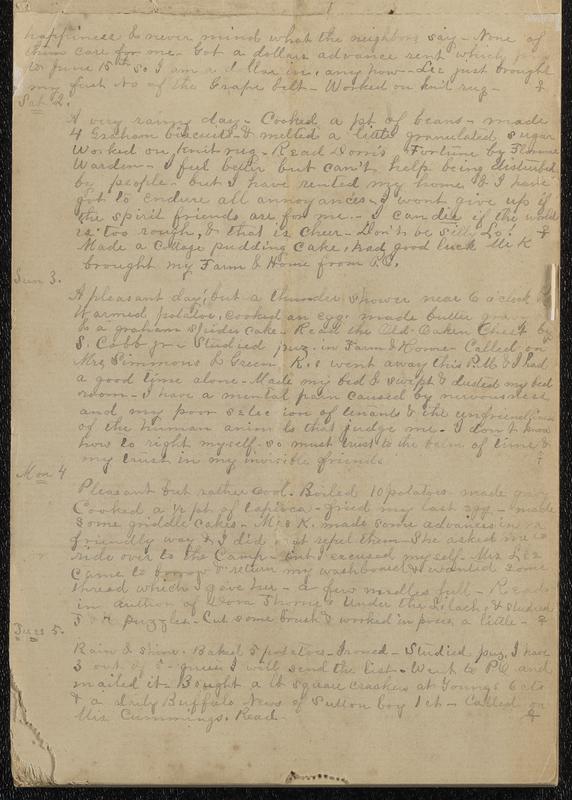 happiness & never mind what the neighbors say - None of
them care for me - Got a dollar advance rent which
to June 15th so I am a dollar in, any how - Liz just brought
my first No of the Grape belt - Worked on knit rug -
Sat 2.
A very rainy day - Cooked a pt of beans - made
4 Graham biscuits & melted a little granulated sugar
Worked on knit rug - Read Dora's Fortune by Florence
Warden - I feel better but can't help being disturbed
by people - but I have rented my home & I have
got to endure all annoyances - I wont give up if
the spirit friends are for me - I can die if the world
is too rough, & that is cheer - Don't be silly Lo!
Made a Cottage pudding cake, had good luck Mr K
brought my Farm & Home from P.O.
Sun 3.
A pleasant day, but a thunder shower near 6 o'clock
Warmed potatoe, cooked an egg. made butter gravy
& a graham spider cake - Read the Old Oaken Chest by
S. Cobb jr - Studied puz. in Farm & Home - Called on
Mrs Simmons & Green K.s went away this P.M & I had
a good time alone - Made my bed & swept & dusted my bed
room - I have a mental pain caused by nervousness
and my poor selection of tenants & the unfriendliness
of the human animals that judge me. I don't know
how to right myself - so must trust to the balm of time &
my trust in my invisible friends
Mon 4
Pleasant but rather cool. Boiled 10 potatoes made gravy
Cooked a ½ pt. of tapioca - fried my last egg - made
some griddle cakes - Mrs K. made some advances in a
friendly way & I did not repel them - She asked me to
ride over to the Camp - but I excused myself - Mrs Liz
came to borrow & return my washboard & wanted some
thread which I gave her - a few needles full - Read
in author of Dora Thorne's Under the Lilacs, & studied
F & H puzzles - Cut some brush & worked in posies a little -
Tues 5.
Rain & shine. Baked 5 potatoes - Ironed - Studied puz, I have
3 out of 5 - guess I will send the list - Went to P.O and
mailed it - Bought a lb square crackers at Youngs 6 cts
& a daily Buffalo News of Sutton boy 1 ct - Called on
Mrs Cummings. Read -